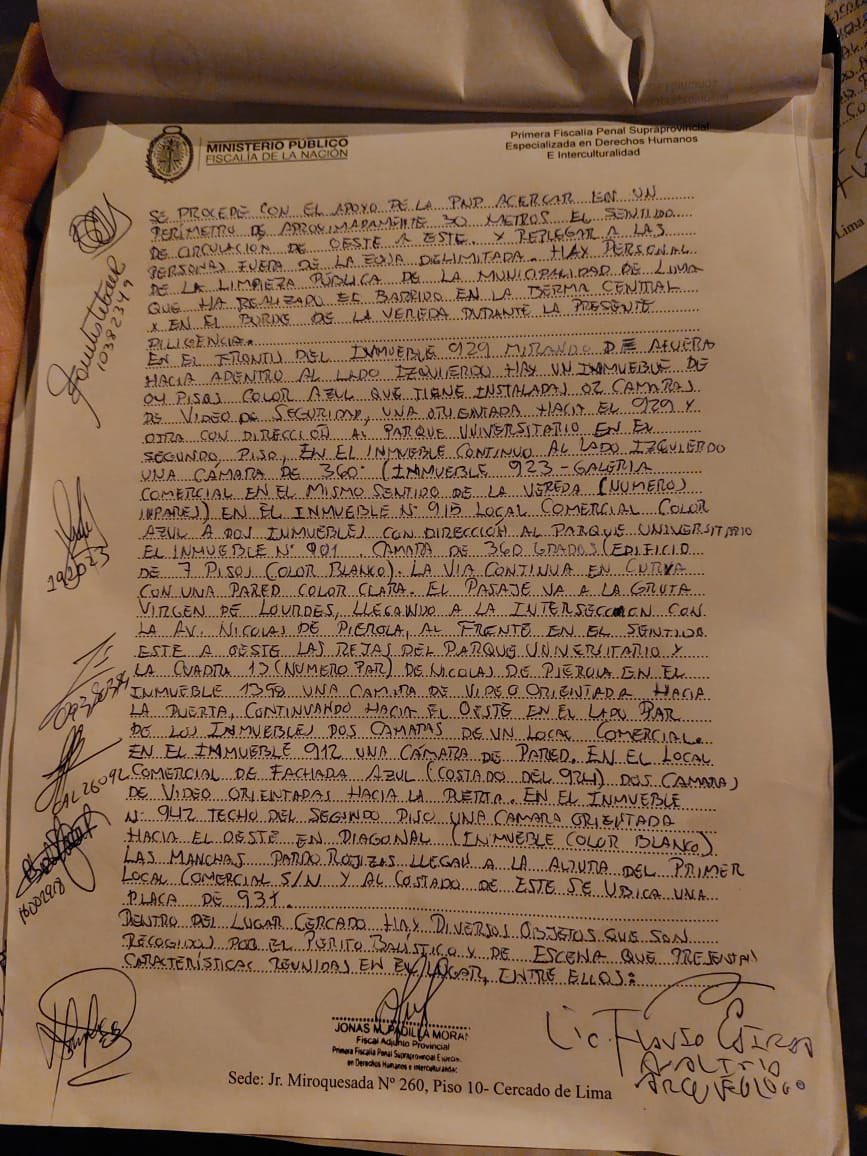 MINISTERIO PÚBLICO
FISCALÍA DE LA NACIÓN
Primera Fiscalía Penal Supraprovincial
Especializada en Derechos Humanos
E Interculturalidad
SE PROCEDE CON EL APOYO DE LA PNP ACERCAR EN UN
PERÍMETRO DE APROXIMADAMENTE 30 METROS EL SENTIDO
DE CIRCULACION DE OESTE A ESTE. Y REPLEGAR A LAS
PERSONAS FUERA DE LA ZONA DELIMITADA. HAY PERSONAL
DE LA LIMPIEZA PÚBLICA DE LA MUNICIPALIDAD DE LIMA
QUE HA REALIZADO EL BARRIDO EN LA BERMA CENTRAL
Y EN EL BORDE DE LA VEREDA DURANTE LA PRESENTE
DILIGENCIA.
EN EL FRONTIS DEL INMUEBLE 929 MIRANDO DE AFUERA
HACIA ADENTRO AL LADO IZQUIERDO HAY UN INMUEBLE DE
04 PISOS COLOR AZUL QUE TIENE INSTALADAS 02 CAMARAS
DE VIDEO DE SEGURIDAD, UNA ORIENTADA HACIA EL 929 Y
OTRA CON DIRECCIÓN AL PARQUE UNIVERSITARIO EN EL
SEGUNDO PISO, EN EL INMUEBLE CONTINUO AL LADO IZQUIERDO
UNA CÁMARA DE 360° (INMUEBLE 923 - GALERIA
COMERCIAL EN EL MISMO SENTIDO DE LA VEREDA (NUMERO)
IMPARES) EN EL INMUEBLE N° 915 LOCAL COMERCIAL COLOR
AZUL A DOS INMUEBLES CON DIRECCIÓN AL PARQUE UNIVERSITARIO
EL INMUEBLE N° 901. CAMARA DE 360 GRADOS (EDIFICIO
DE 7 PISOS COLOR BLANCO). LA VIA CONTINUA EN CURVA
CON UNA PARED COLOR CLARA. EL PASAJE VA A LA GRUTA
VIRGEN DE LOURDES, LLEGANDO A LA INTERSECCION CON
LA AV. NICOLAS DE PIEROLA, AL FRENTE EN EL SENTIDO
ESTE A OESTE LAS REJAS DEL PARQUE UNIVERSITARIO Y
LA CUADRA 13 (NUMERO PAR) DE NICOLAS DE PIEROLA EN EL
INMUEBLE 1398 UNA CAMARA DE VIDEO ORIENTADA HACIA
LA PUERTA, CONTINUANDO HACIA EL OESTE EN EL LADO PAR
DE LOS INMUEBLES DOS CAMARAS DE UN LOCAL COMERCIAL.
EN EL INMUEBLE 912 UNA CÁMARA DE PARED. EN EL LOCAL
COMERCIAL DE FACHADA AZUL (COSTADO DEL 924) DOS CAMARAS
DE VIDEO ORIENTADAS HACIA LA PUERTA. EN EL INMUEBLE
N° 942 TECHO DEL SEGUNDO PISO UNA CAMARA ORIENTADA
HACIA EL OESTE EN DIAGONAL (INMUEBLE COLOR BLANCO)
LAS MANCHAS PARDO ROJIZAS LLEGAN A LA ALTURA DEL PRIMER
LOCAL COMERCIAL S/N Y AL COSTADO DE ESTE SE UBICA UNA
PLACA DE 931.
DENTRO DEL LUGAR CERCADO HAY DIVERSOS OBJETOS QUE SON
RECOGIDOS POR EL PERITO BALÍSTICO Y DE ESCENA QUE PRESENTAN
CARACTERÍSTICAS REUNIDAS EN EL LUGAR, ENTRE ELLOS:
10382349
192023
CAL 26092
JONAS M. PADILLA MORAN
Fiscal Adjunto Provincial
Primera Fiscalía Penal Supraprovincial
en Derechos Humanos e Interculturalidad
Lic. Flavio
ANALISTA
ARQUEÓLOGO
Sede: Jr. Miroquesada Nº 260, Piso 10- Cercado de Lima